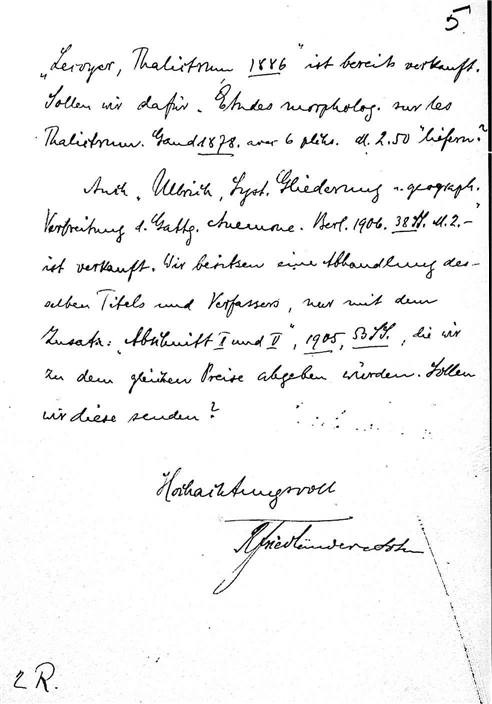 5.
„Lecoyer, Thalictrum 1886“ ist bereits verkauft.
Sollen wir dafür „Etudes morpholog. sur les
Thalictrum. Gand 1878. avec 6 plchs. M. 2.50“ liefern?
Auch „Ulbrich, Syst. Gliederung u. geograph.
Verbreitung d. Gattg. Anemone. Berl. 1906. 38 SS. M. 2.–“
ist verkauft. Wir besitzen eine Abhandlung des-
selben Titels und Verfassers, nur mit dem
Zusatz: „Abschnitt I und II“, 1905, 53 SS., die wir
zu dem gleichen Preise abgeben würden. Sollen
wir diese senden?
Hochachtungsvoll
R Friedländer & Sohn
2 R.